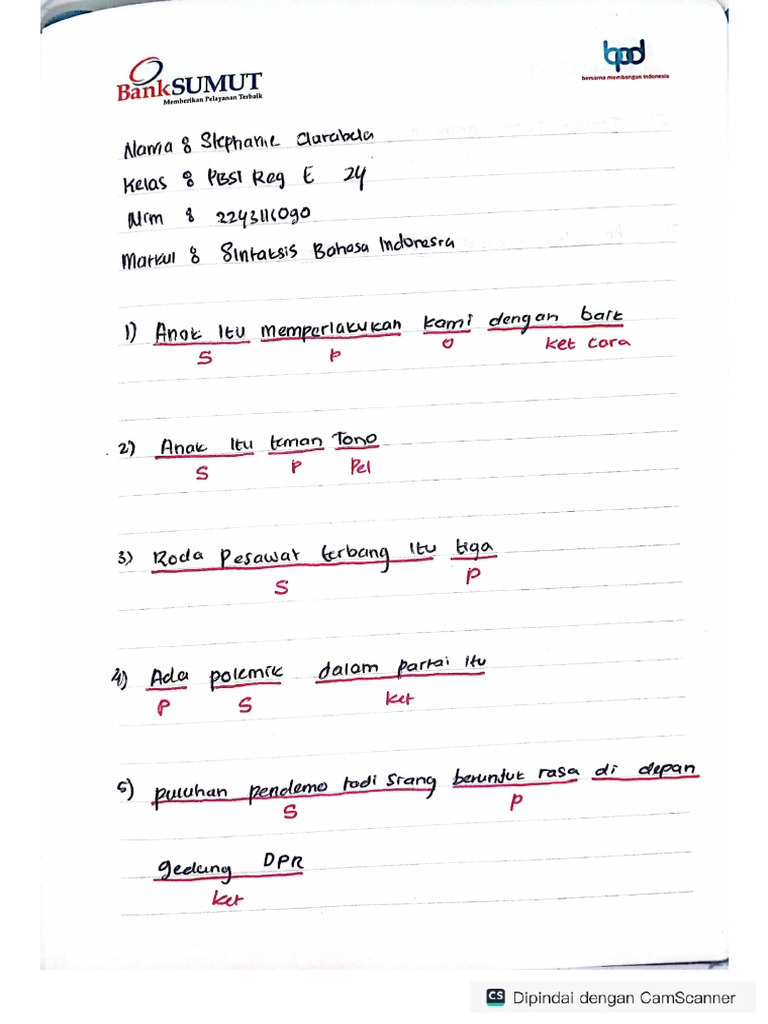 BankSUMUT
Memberikan Pelayanan Terbaik
bpd
bersama membangun indonesia
Nama : Stephanie Clarabela
Kelas : PBSI Reg E 24
Nim : 2243111090
Matkul : Sintaksis Bahasa Indonesia
1) Anak Itu memperlakukan kami dengan baik
S P O ket cara
2) Anak Itu teman Tono
S P Pel
3) Roda Pesawat terbang Itu tiga
S P
4) Ada polemik dalam partai Itu
P S ket
5) puluhan pendemo tadi siang berunjuk rasa di depan
S P
gedung DPR
ket
CS Dipindai dengan CamScanner